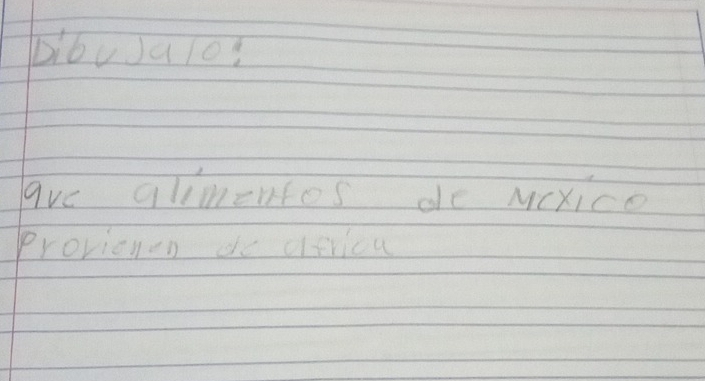 Dibujalo:
que alimentos de México
Provienen de africa